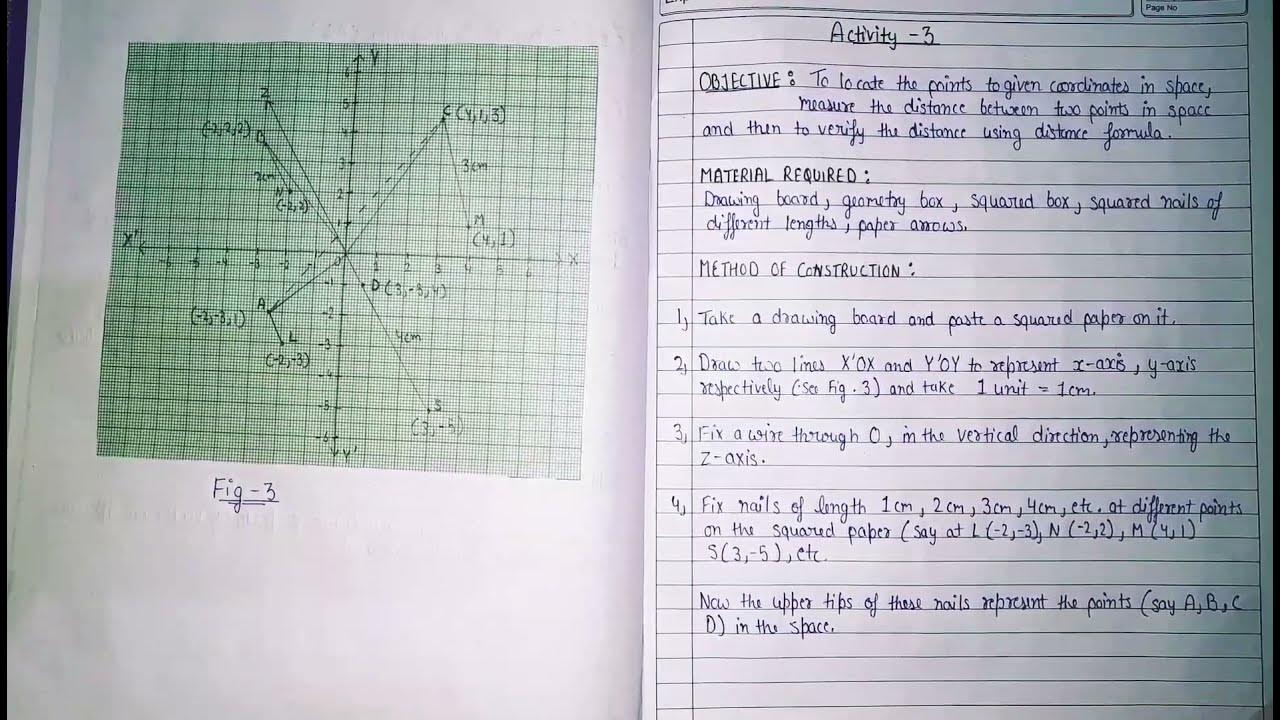 Y
6
Z
5
C (4,1,3)
(-2,2,2)
4
3
3cm
2cm
2
N
(-2,2)
1
M
(4,1)
X'
-5
-3
1
2
3
4
5
6
X
-1
D (3,-5,4)
A
-2
(-2,-3,1)
L
-3
4cm
(-2,-3)
-4
-5
S
(3,-5)
-6
Y'
Fig-3
Page No
Activity -3
OBJECTIVE : To locate the points to given coordinates in space,
measure the distance between two points in space
and then to verify the distance using distance formula.
MATERIAL REQUIRED :
Drawing board, geometry box, squared box, squared nails of
different lengths, paper arrows.
METHOD OF CONSTRUCTION :
1, Take a drawing board and paste a squared paper on it.
2, Draw two lines X'OX and Y'OY to represent x-axis, y-axis
respectively (See Fig. 3) and take 1 unit = 1cm.
3, Fix a wire through O, in the vertical direction, representing the
z-axis.
4, Fix nails of length 1cm, 2cm, 3cm, 4cm, etc. at different points
on the squared paper (say at L(-2,-3), N(-2,2), M(4,1)
S(3,-5), etc.
Now the upper tips of these nails represent the points (say A, B, C
D) in the space.